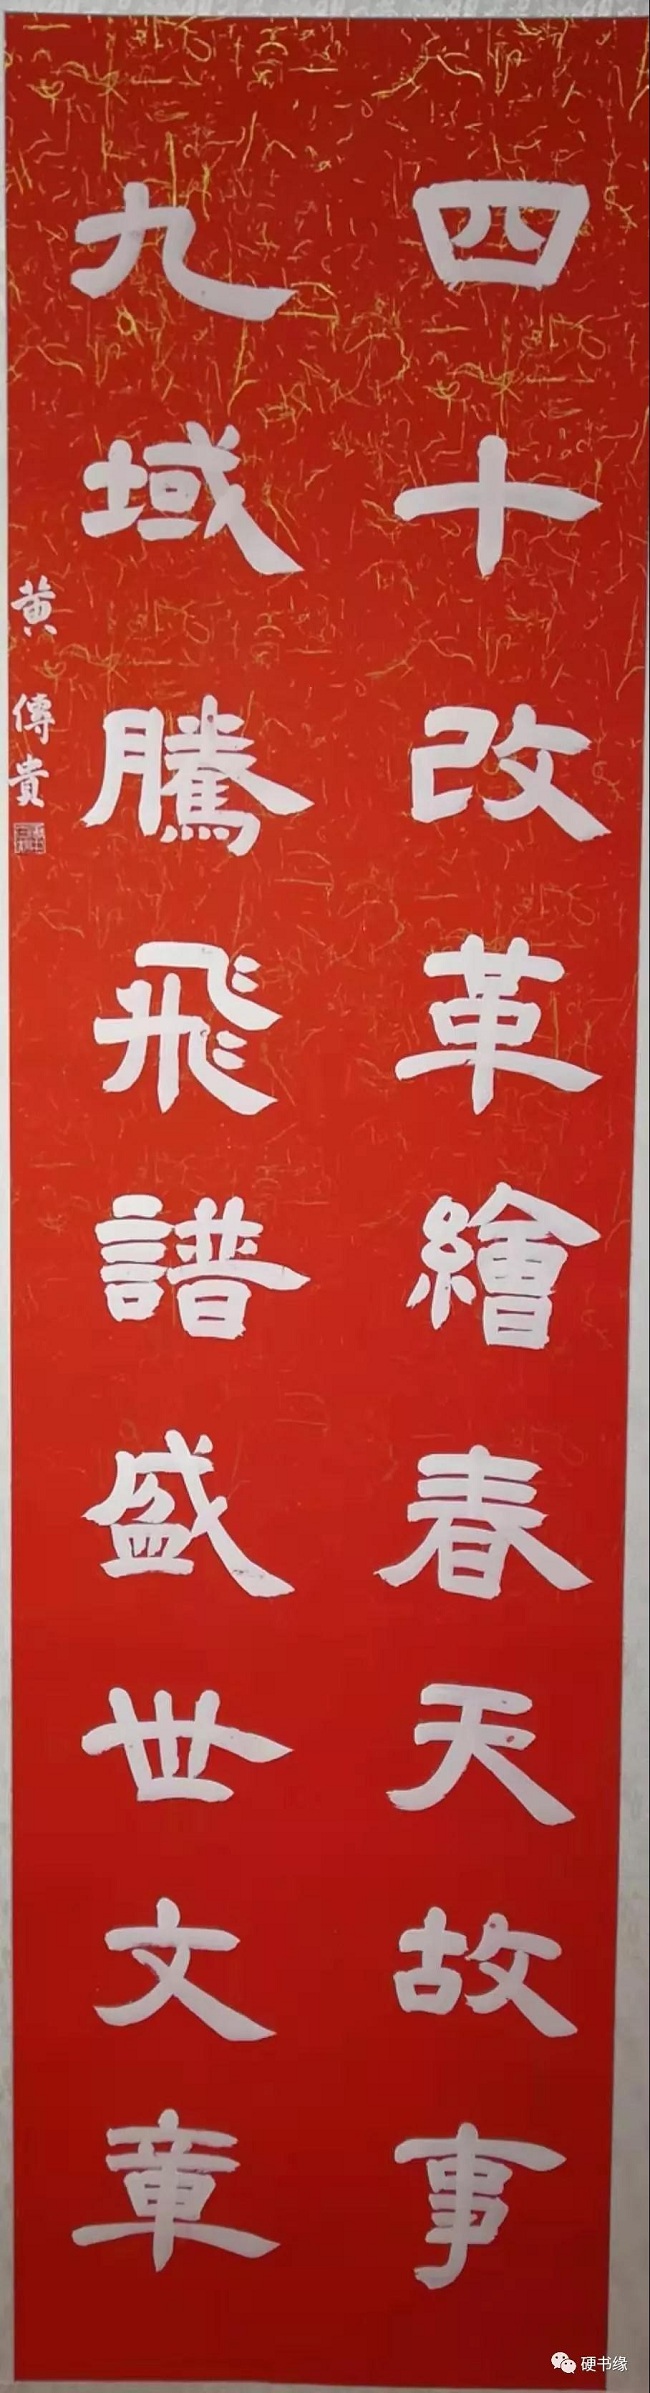 四十改革繪春天故事
九域騰飛譜盛世文章
黄傳貴
硬书缘